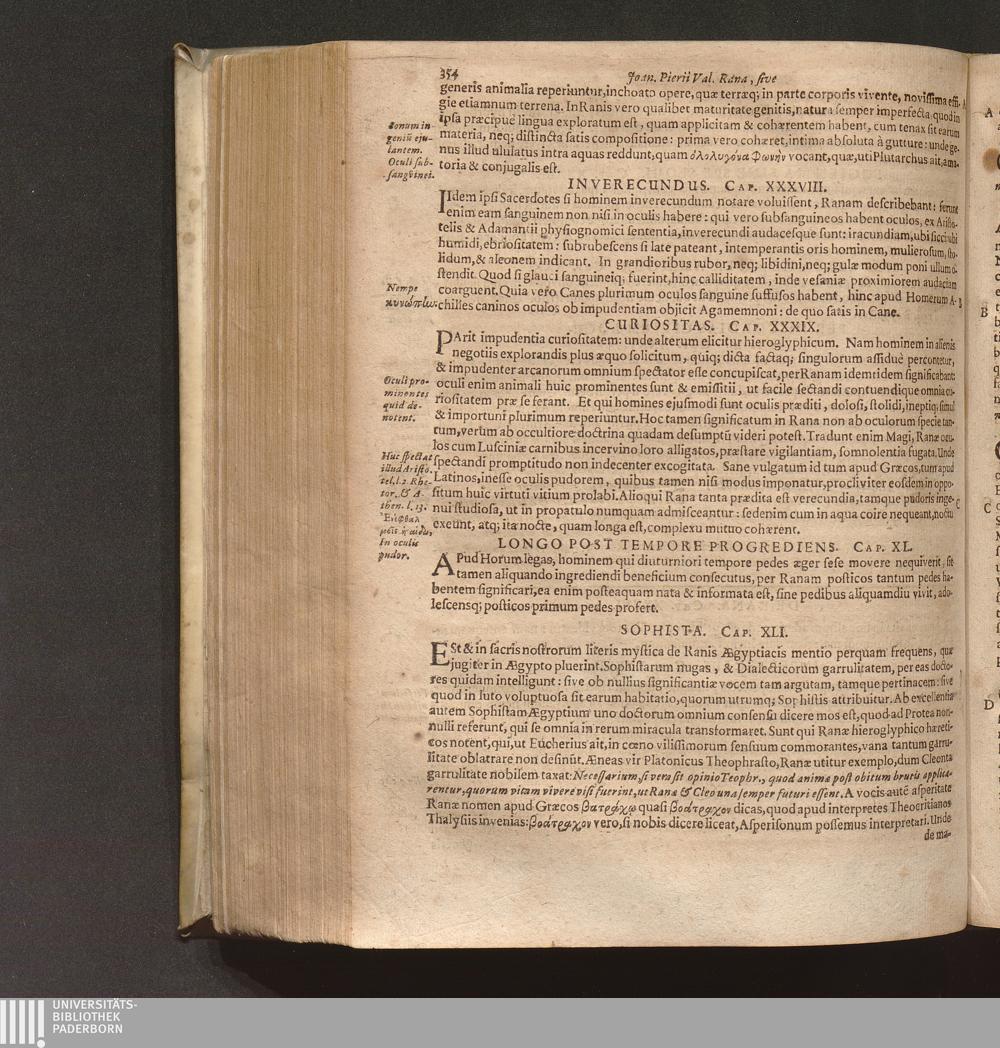 354
Joan. Pierii Val. Rana, sive
generis animalia reperiuntur, inchoato opere, quæ terræq; in parte corporis vivente, novissima effi-
gie etiamnum terrena. In Ranis vero qualibet maturitate genitis, natura semper imperfecta quod in
ipsa præcipuè lingua exploratum est, quam applicitam & cohærentem habent, cum tenax sit earum
materia, neq; distincta satis compositione: prima vero cohæret, intima absoluta à gutture: unde ge-
nus illud ululatus intra aquas reddunt, quam ὀλολυγόνα Φωνὴν vocant, quæ, uti Plutarchus ait, ama-
toria & conjugalis est.
Sonum in-
geniū eju-
lantem.
Oculi sub-
sangvinei.
INVERECUNDUS. CAP. XXXVIII.
IIdem ipsi Sacerdotes si hominem inverecundum notare voluissent, Ranam describebant: ferunt
enim eam sanguinem non nisi in oculis habere: qui vero subsanguineos habent oculos, ex Aristo-
telis & Adamantii physiognomici sententia, inverecundi audacesque sunt: iracundiam, ubi sicci: ubi
humidi, ebriositatem: subrubescens si late pateant, intemperantis oris hominem, mulierosum, sto-
lidum, & aleonem indicant. In grandioribus rubor, neq; libidini, neq; gulæ modum poni ullum o-
stendit. Quod si glauci sanguineiq; fuerint, hinc calliditatem, inde vesaniæ proximiorem audaciam
coarguent. Quia vero Canes plurimum oculos sanguine suffusos habent, hinc apud Homerum A-
chilles caninos oculos ob impudentiam objicit Agamemnoni: de quo satis in Cane.
Nempe
κυνώπιω.
B
CURIOSITAS. CAP. XXXIX.
PArit impudentia curiositatem: unde alterum elicitur hieroglyphicum. Nam hominem in alienis
negotiis explorandis plus æquo solicitum, quiq; dicta factaq; singulorum assiduè percontetur,
& impudenter arcanorum omnium spectator esse concupiscat, per Ranam identidem significabant:
oculi enim animali huic prominentes sunt & emissitii, ut facile sectandi contuendique omnia cu-
riositatem præ se ferant. Et qui homines ejusmodi sunt oculis præditi, dolosi, stolidi, ineptiq; simul
& importuni plurimum reperiuntur. Hoc tamen significatum in Rana non ab oculorum specie tan-
tum, verùm ab occultiore doctrina quadam desumptū videri potest. Tradunt enim Magi, Ranæ ocu-
los cum Lusciniæ carnibus in cervino loro alligatos, præstare vigilantiam, somnolentia fugata. Unde
spectandi promptitudo non indecenter excogitata. Sane vulgatum id tum apud Græcos, tum apud
Latinos, inesse oculis pudorem, quibus tamen nisi modus imponatur, procliviter eosdem in oppo-
situm huic virtuti vitium prolabi. Alioqui Rana tanta prædita est verecundia, tamque pudoris inge-
nui studiosa, ut in propatulo numquam admisceantur: sed enim cum in aqua coire nequeant, noctu
exeunt, atq; ita nocte, quam longa est, complexu mutuo cohærent.
Oculi pro-
minentes
quid de-
notent.
Huc spectat
illud Aristo.
tel. l. 2. Rhe-
tor. & A-
then. l. 13.
In oculis
pudor.
C
LONGO POST TEMPORE PROGREDIENS. CAP. XL.
APud Horum legas, hominem qui diuturniori tempore pedes æger sese movere nequiverit, sit
tamen aliquando ingrediendi beneficium consecutus, per Ranam posticos tantum pedes ha-
bentem significari, ea enim posteaquam nata & informata est, sine pedibus aliquamdiu vivit, ado-
lescensq; posticos primum pedes profert.
SOPHISTA. CAP. XLI.
ESt & in sacris nostrorum literis mystica de Ranis Ægyptiacis mentio perquam frequens, quæ
jugiter in Ægypto pluerint. Sophistarum nugas, & Dialecticorum garrulitatem, per eas docto-
res quidam intelligunt: sive ob nullius significantiæ vocem tam argutam, tamque pertinacem: sive
quod in luto voluptuosa sit earum habitatio, quorum utrumq; Sophistis attribuitur. Ab excellentia
autem Sophistam Ægyptium uno doctorum omnium consensu dicere mos est, quod ad Protea non-
nulli referunt, qui se omnia in rerum miracula transformaret. Sunt qui Ranæ hieroglyphico hæreti-
cos notent, qui, ut Eucherius ait, in cœno vilissimorum sensuum commorantes, vana tantum garru-
litate oblatrare non definūt. Æneas vir Platonicus Theophrasto, Ranæ utitur exemplo, dum Cleonta
garrulitate nobilem taxat: Necessarium, si vera sit opinio Teophr., quod animæ post obitum brutis applica-
rentur, quorum vitam vivere visi fuerint, ut Rana & Cleo una semper futuri essent. A vocis autē asperitate
Ranæ nomen apud Græcos βατράχῳ quasi βοάτραχον dicas, quod apud interpretes Theocritianos
Thalysiis invenias: βοάτραχον vero, si nobis dicere liceat, Asperisonum possemus interpretari. Unde
de ma-
A
B
C
D
UNIVERSITÄTS-
BIBLIOTHEK
PADERBORN